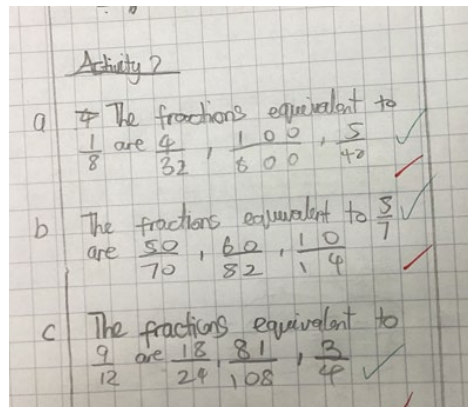 Activity 2
a The fractions equivalent to
1/8 are 4/32, 100/800, 5/40
b The fractions equivalent to 5/7
are 50/70, 60/82, 10/14
c The fractions equivalent to
9/12 are 18/24, 81/108, 3/4